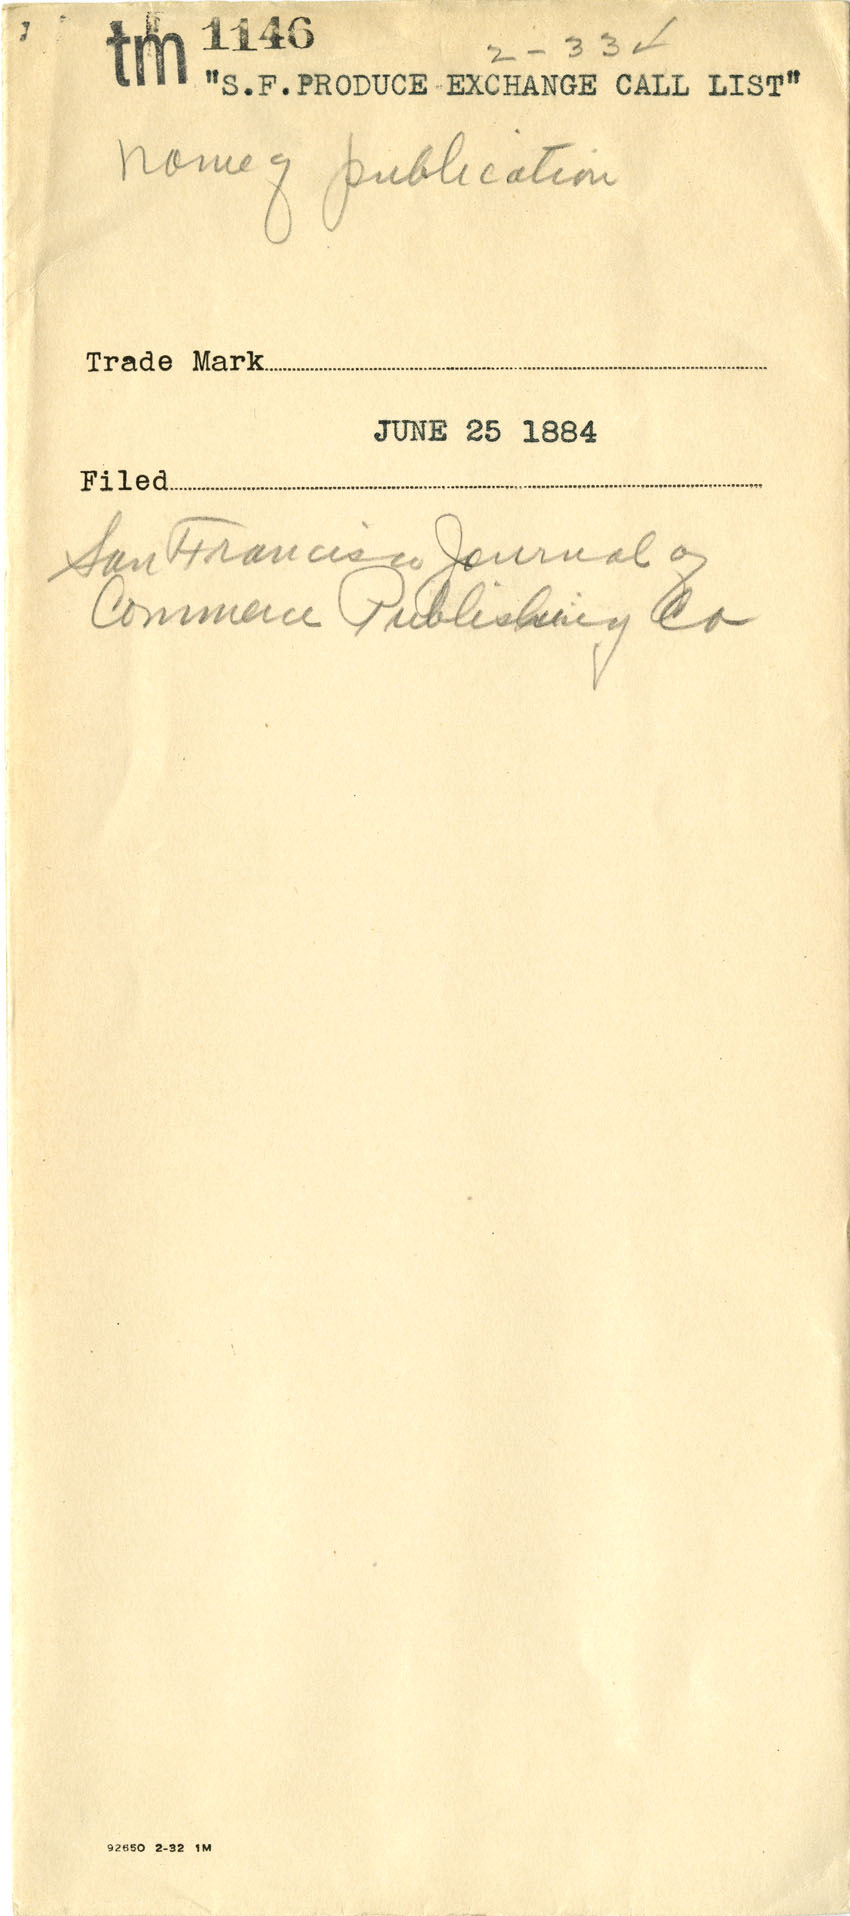 tm 1146
2-33 ✓
"S.F.PRODUCE EXCHANGE CALL LIST"
name of publication
Trade Mark
JUNE 25 1884
Filed
San Francisco Journal of
Commerce Publishing Co
92650 2-32 1M